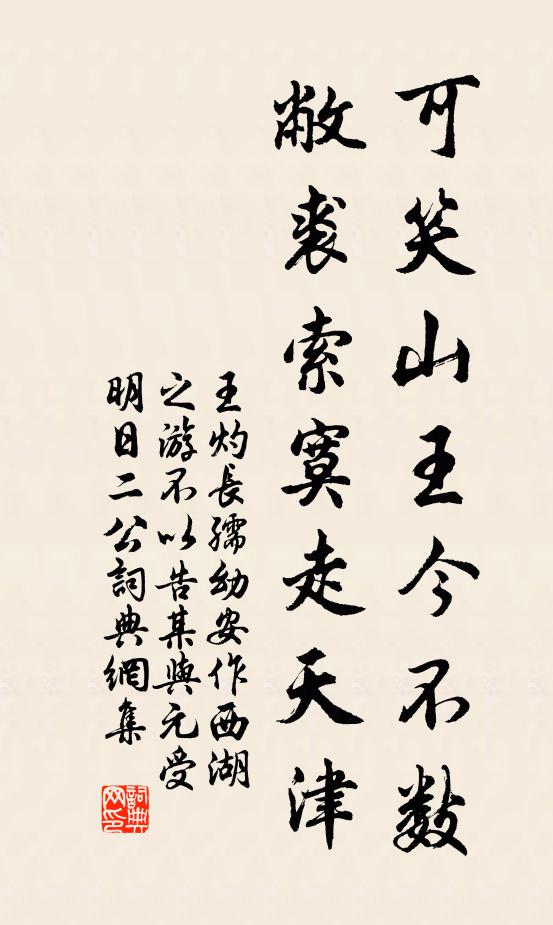 可笑山王今不数
敝裘索寞走天津
王灼長孺幼安作西湖
之游不以告某與元受
明日二公詞典網集
詞典网印